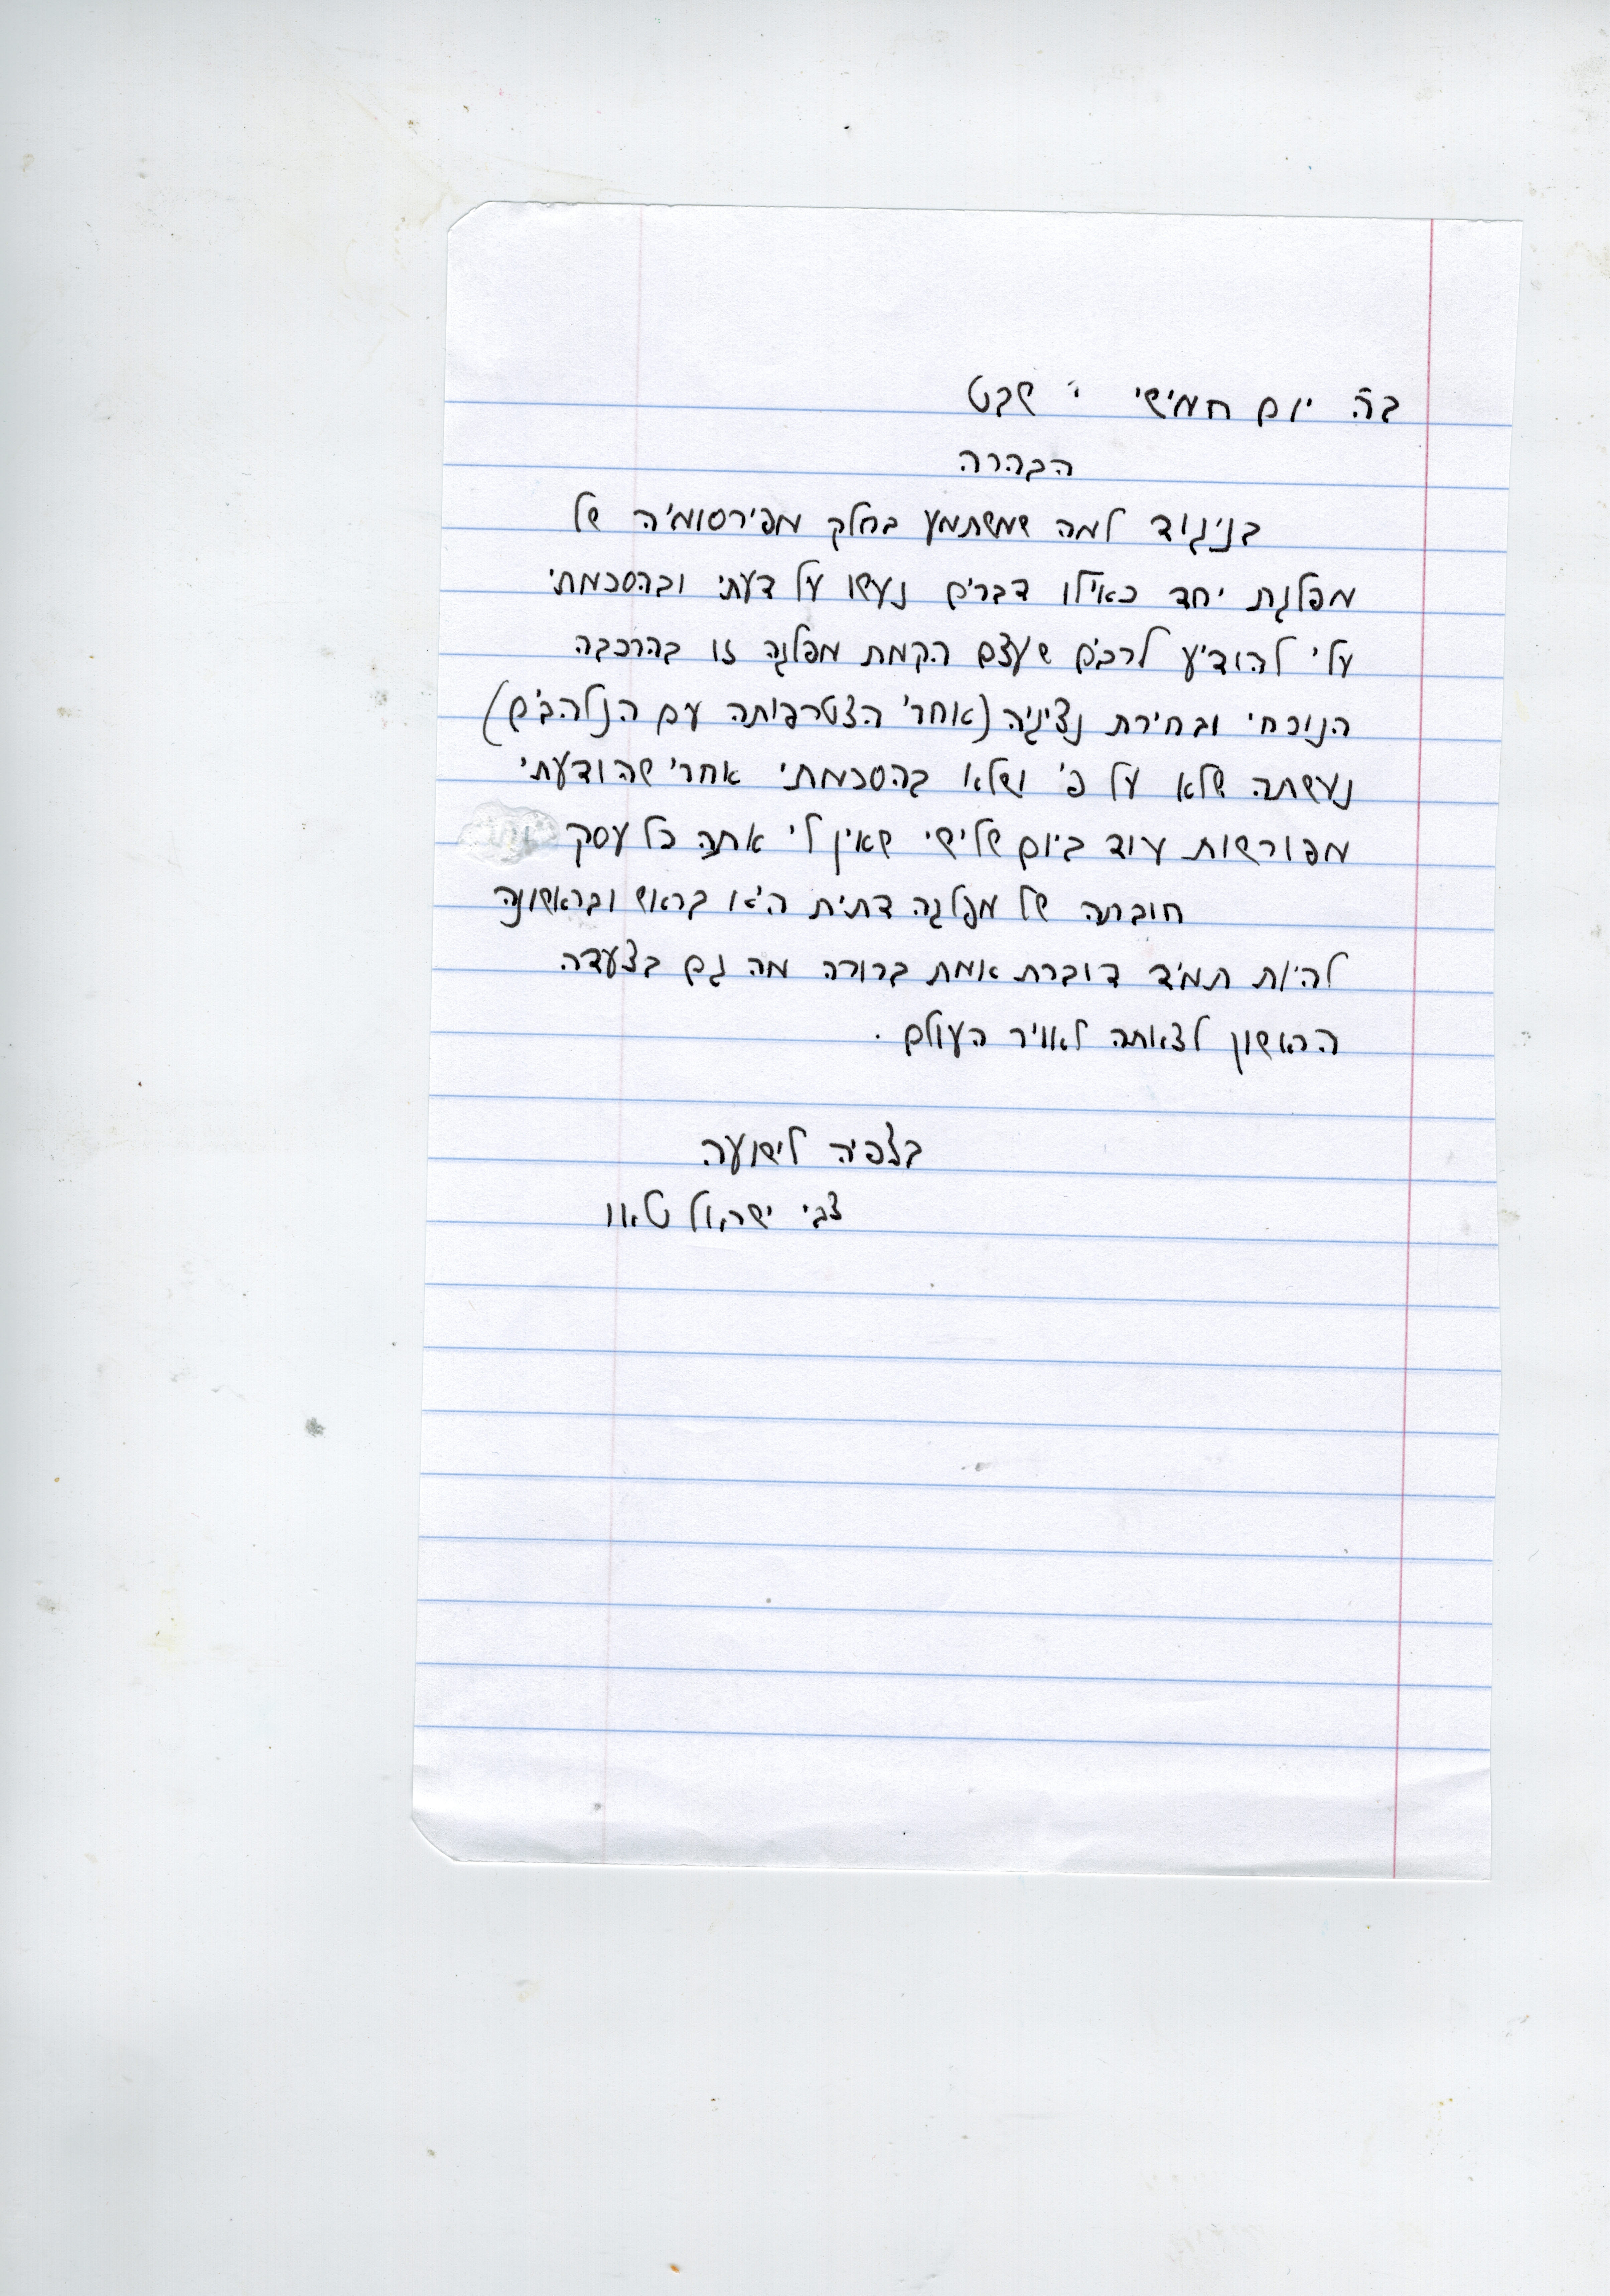 בה יום חמישי י שבט
הבהרה
בניגוד למה שמשתמע בחלק מפירסומיה של
מפלגת יחד כאילו דברים נעשו על דעתי ובהסכמתי
עלי להודיע לרבים שעצם הקמת מפלגה זו בהרכבה
הנוכחי ובחירת נציגיה (אחרי הצטרפותה עם הנלהבים)
נעשתה שלא על פי ושלא בהסכמתי אחרי שהודעתי
מפורשות עוד ביום שלישי שאין לי אתה כל עסק
חובתה של מפלגה דתית היא בראש ובראשונה
להיות תמיד דוברת אמת ברורה מה גם בצעדה
הראשון לצאתה לאויר העולם .
בצפיה לישועה
צבי ישראל טאו